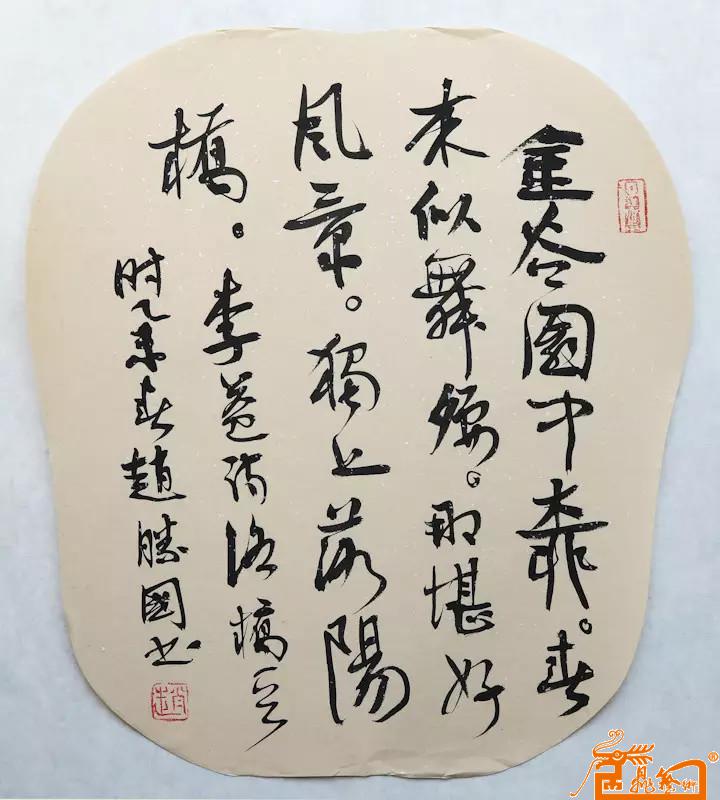 金谷園中柳。春
来似舞腰。那堪好
风景。獨上落陽
橋。李益詩洛橋
时乙未春趙勝國书
藝術